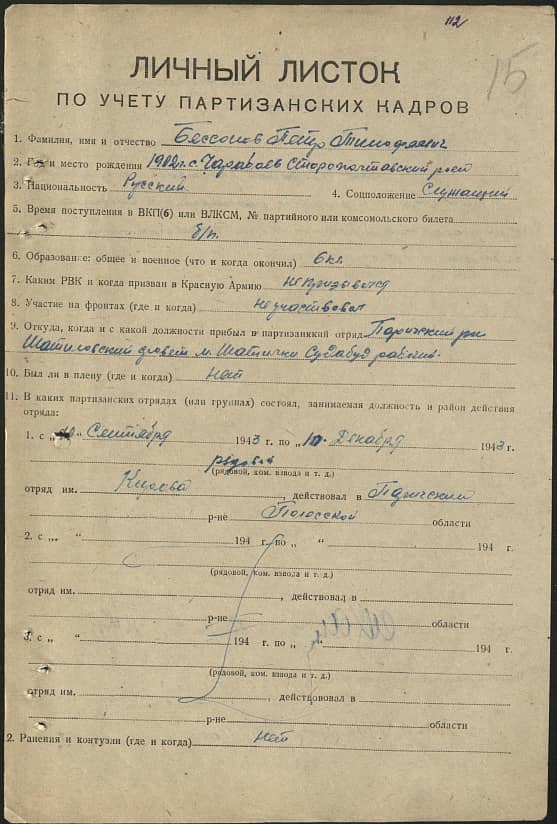 112
15
ЛИЧНЫЙ ЛИСТОК
ПО УЧЕТУ ПАРТИЗАНСКИХ КАДРОВ
1. Фамилия, имя и отчество Бессонов Петр Тимофеевич
2. Год и место рождения 1902 г. с.
3. Национальность Русский 4. Соцположение Служащий
5. Время поступления в ВКП(б) или ВЛКСМ, № партийного или комсомольского билета
б/п.
6. Образование: общее и военное (что и когда окончил) 6 кл.
7. Каким РВК и когда призван в Красную Армию не призывался
8. Участие на фронтах (где и когда) не участвовал
9. Откуда, когда и с какой должности прибыл в партизанский отряд
рабочий
10. Был ли в плену (где и когда) нет
11. В каких партизанских отрядах (или группах) состоял, занимаемая должность и район действия
отряда:
1. с „ “ Сентября 1943 г. по „10“ Декабря 1943 г.
рядовой
(рядовой, ком. взвода и т. д.)
отряд им. Кирова, действовал в Паричский
р-не Полесской области
2. с „ “ 194 г. по „ “ 194 г.
(рядовой, ком. взвода и т. д.)
отряд им. , действовал в
р-не области
3. с „ “ 194 г. по „ “ 194 г.
(рядовой, ком. взвода и т. д.)
отряд им. действовал в
р-не области
2. Ранения и контузии (где и когда) нет